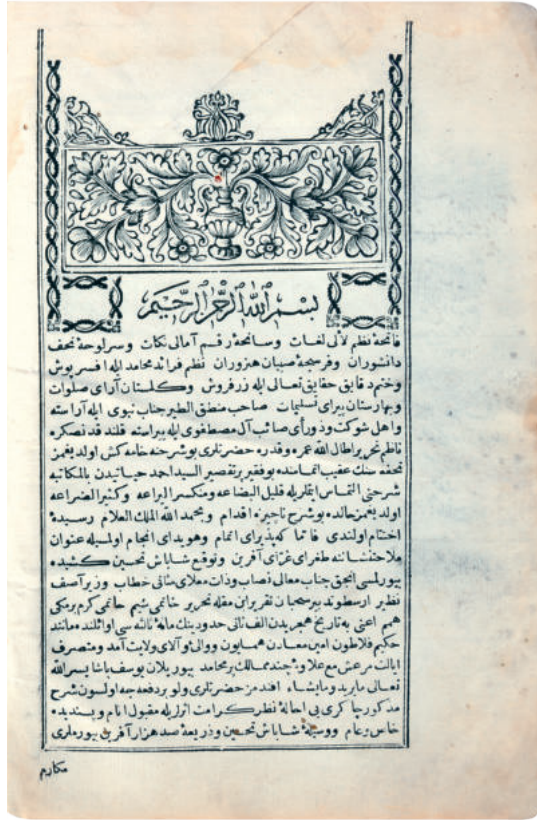 بسم الله الرحمن الرحيم
فاتحهٔ نظم لآلی لغات وسانحهٔ رقم آمالی نكات وسرلوحهٔ تحف
دانشوران وفرسجهٔ صبيان هنزوران نظم فرائد محامد ايله افسرپوش
وختم دقايق حقايق تعالى ايله زرفروش وكلستان آرای صلوات
وبهارستان پيرای تسليمات صاحب منطق الطير جناب نبوی ايله آراسته
واهل شوكت وذورأی صائب آل مصطفوی ايله پيراسته قلند قد نصكره
ناظم تحرير اطال الله عمره وقدره حضرتلری بو شرحنه خامه كش اولديغمز
تحفه سنك عقيب اتمامنده بو فقير پرتقصير السيد احمد حياتيدن بالمكاتبه
شرحنی التماس ايتملريله قليل البضاعه ومنكسر البراعه وكثير الضراعه
اولديغمز حالده بو شرح ناچيزه اقدام وبحمد الله الملك العلام رسيدهٔ
اختتام اولندی فاتما كه پذيرای اتمام وهويدای انجام اولمسيله عنوان
ملاحتنشاننه طغرای غرای آفرين وتوقيع شاباش تحسين كشيده
بيورلمسی انجق جناب معالی نصاب وذات معلای مثانی خطاب وزير آصف
نظير ارسطو تدبير سحبان تقرير ابن مقله تحرير خاتمی شيم حاتمی كرم برمكی
همم اعنی به تاريخ هجريدن الف ثانی حدودينك مائهٔ ثالثه سی اوائلنده مانند
حكيم فلاطون امين معادن همايون ووالئ والای ولايت آمد ومتصرف
ايالت مرعش مع علاوهٔ چند ممالك پر محامد بيوريلان يوسف پاشا يسر الله
تعالى مايريد ومايشاء افندمز حضرتلری ولو بر دفعه جه اولسون شرح
مذكور چاكری بی احالهٔ نظر كرامت اثرلريله مقبول انام وپسنديدهٔ
خاص وعام ووسيلهٔ شاباش تحسين وذريعهٔ صد هزار آفرين بيورملری
مكارم